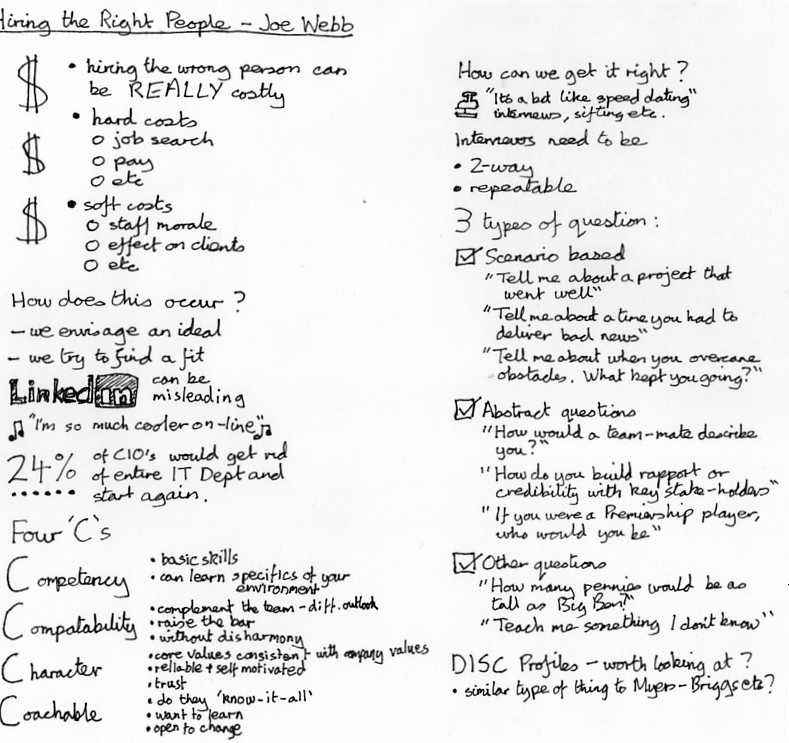 Hiring the Right People - Joe Webb
$ • hiring the wrong person can
be REALLY costly
• hard costs
$ o job search
o pay
o etc
$ • soft costs
o staff morale
o effect on clients
o etc
How does this occur ?
- we envisage an ideal
- we try to find a fit
Linked in can be
misleading
"I'm so much cooler on-line"
24% of CIO's would get rid
of entire IT Dept and
start again.
Four 'C's
Competency
• basic skills
• can learn specifics of your
environment
Compatability
• complement the team - diff. outlook
• raise the bar
• without disharmony
Character
• core values consistent with company values
• reliable + self motivated
• trust
Coachable
• do they 'know-it-all'
• want to learn
• open to change
How can we get it right ?
"Its a bit like speed dating"
interviews, sifting etc.
Interviews need to be
• 2-way
• repeatable
3 types of question :
Scenario based
"Tell me about a project that
went well"
"Tell me about a time you had to
deliver bad news"
"Tell me about when you overcame
obstacles. What kept you going?"
Abstract questions
"How would a team-mate describe
you?"
"How do you build rapport or
credibility with key stake-holders"
"If you were a Premiership player,
who would you be"
Other questions
"How many pennies would be as
tall as Big Ben?"
"Teach me something I don't know"
DISC Profiles - worth looking at ?
• similar type of thing to Myers-Briggs etc?